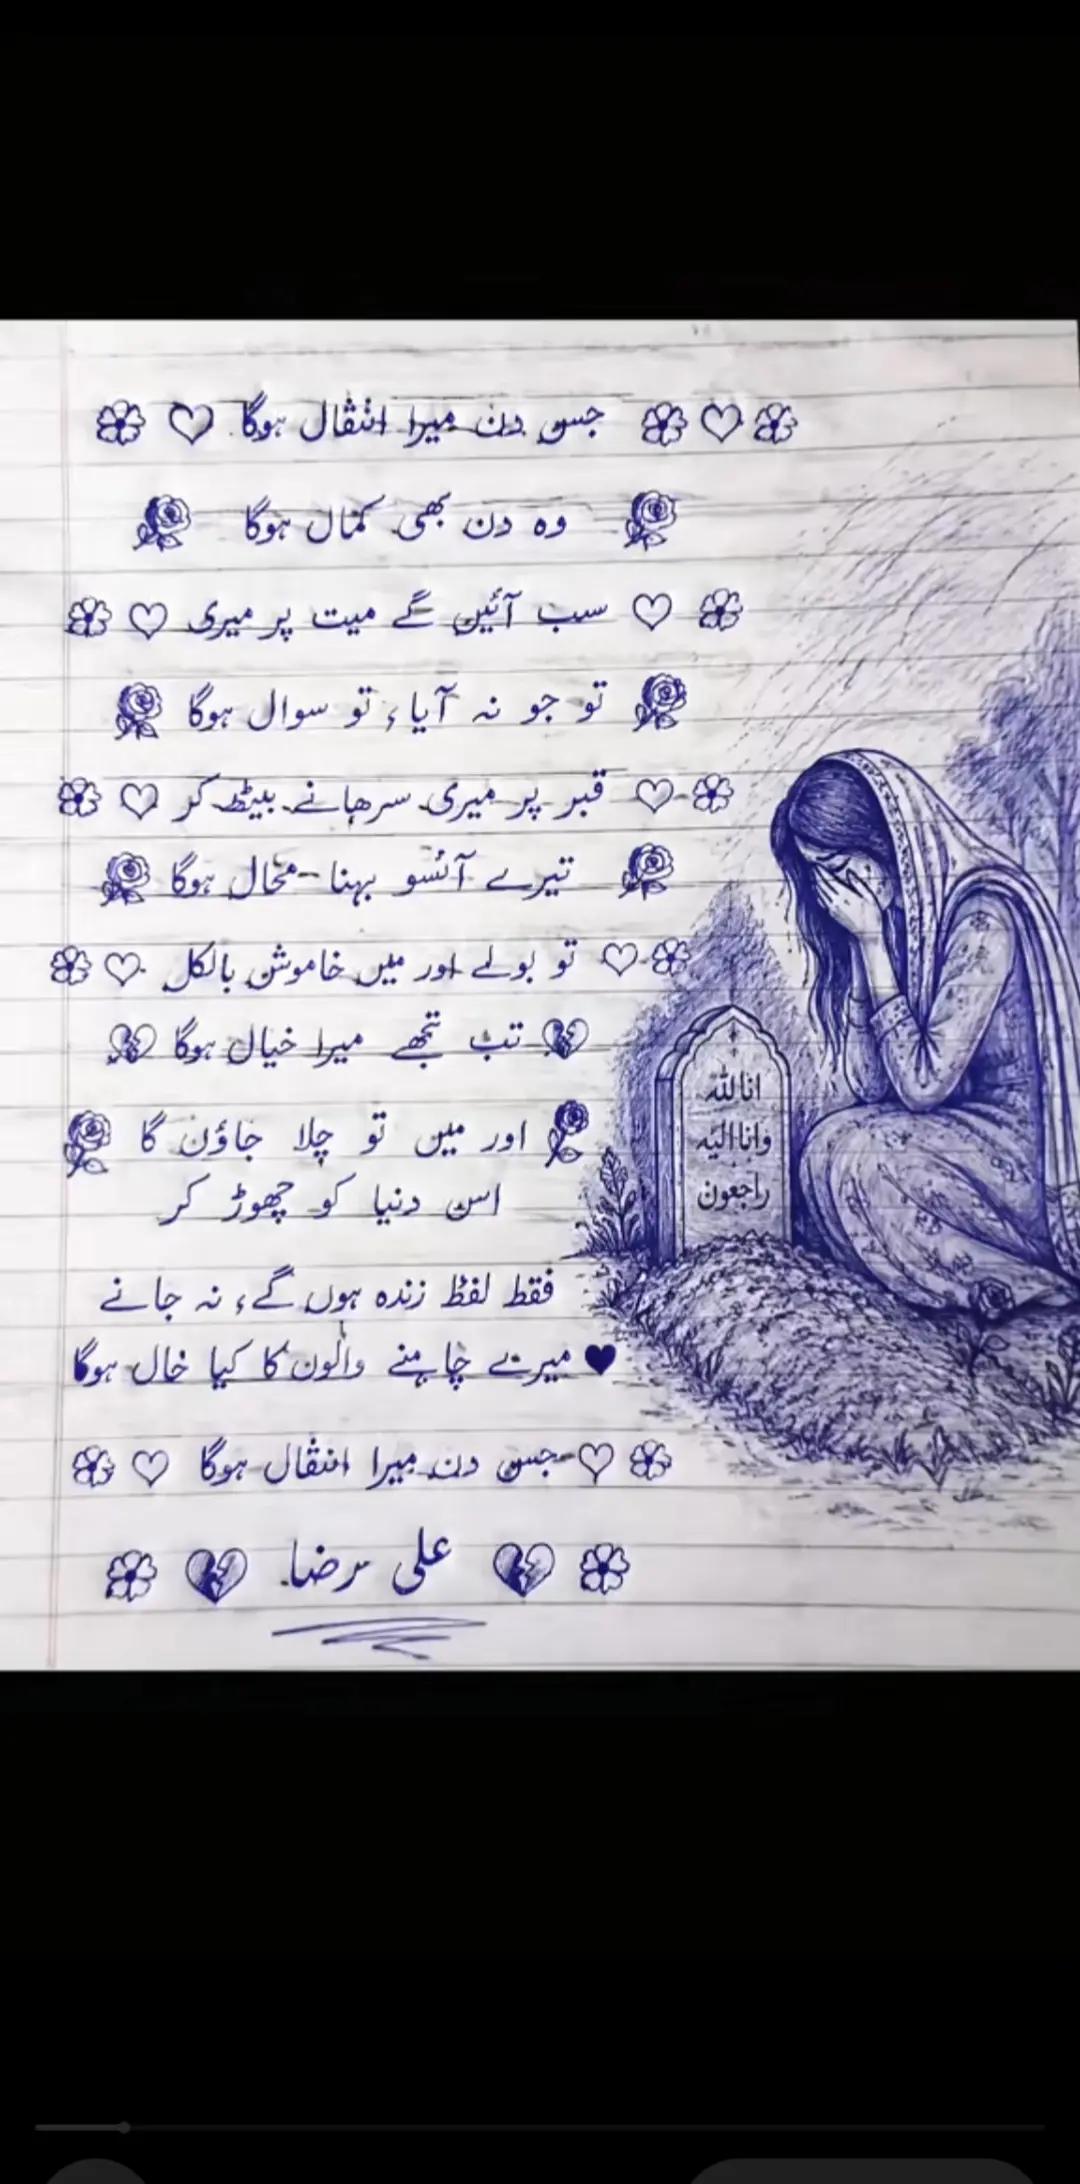 جس دن میرا انتقال ہوگا
وہ دن بھی کمال ہوگا
سب آئیں گے میت پر میری
تو جو نہ آیا، تو سوال ہوگا
قبر پر میری سرھانے بیٹھ کر
تیرے آنسو بہنا محال ہوگا
تو بولے اور میں خاموش بالکل
تب تجھے میرا خیال ہوگا
اور میں تو چلا جاؤن گا
اس دنیا کو چھوڑ کر
فقط لفظ زندہ ہوں گے، نہ جانے
میرے چاہنے والون کا کیا خال ہوگا
جس دن میرا انتقال ہوگا
علی رضا
انا للہ
وانا الیہ
راجعون